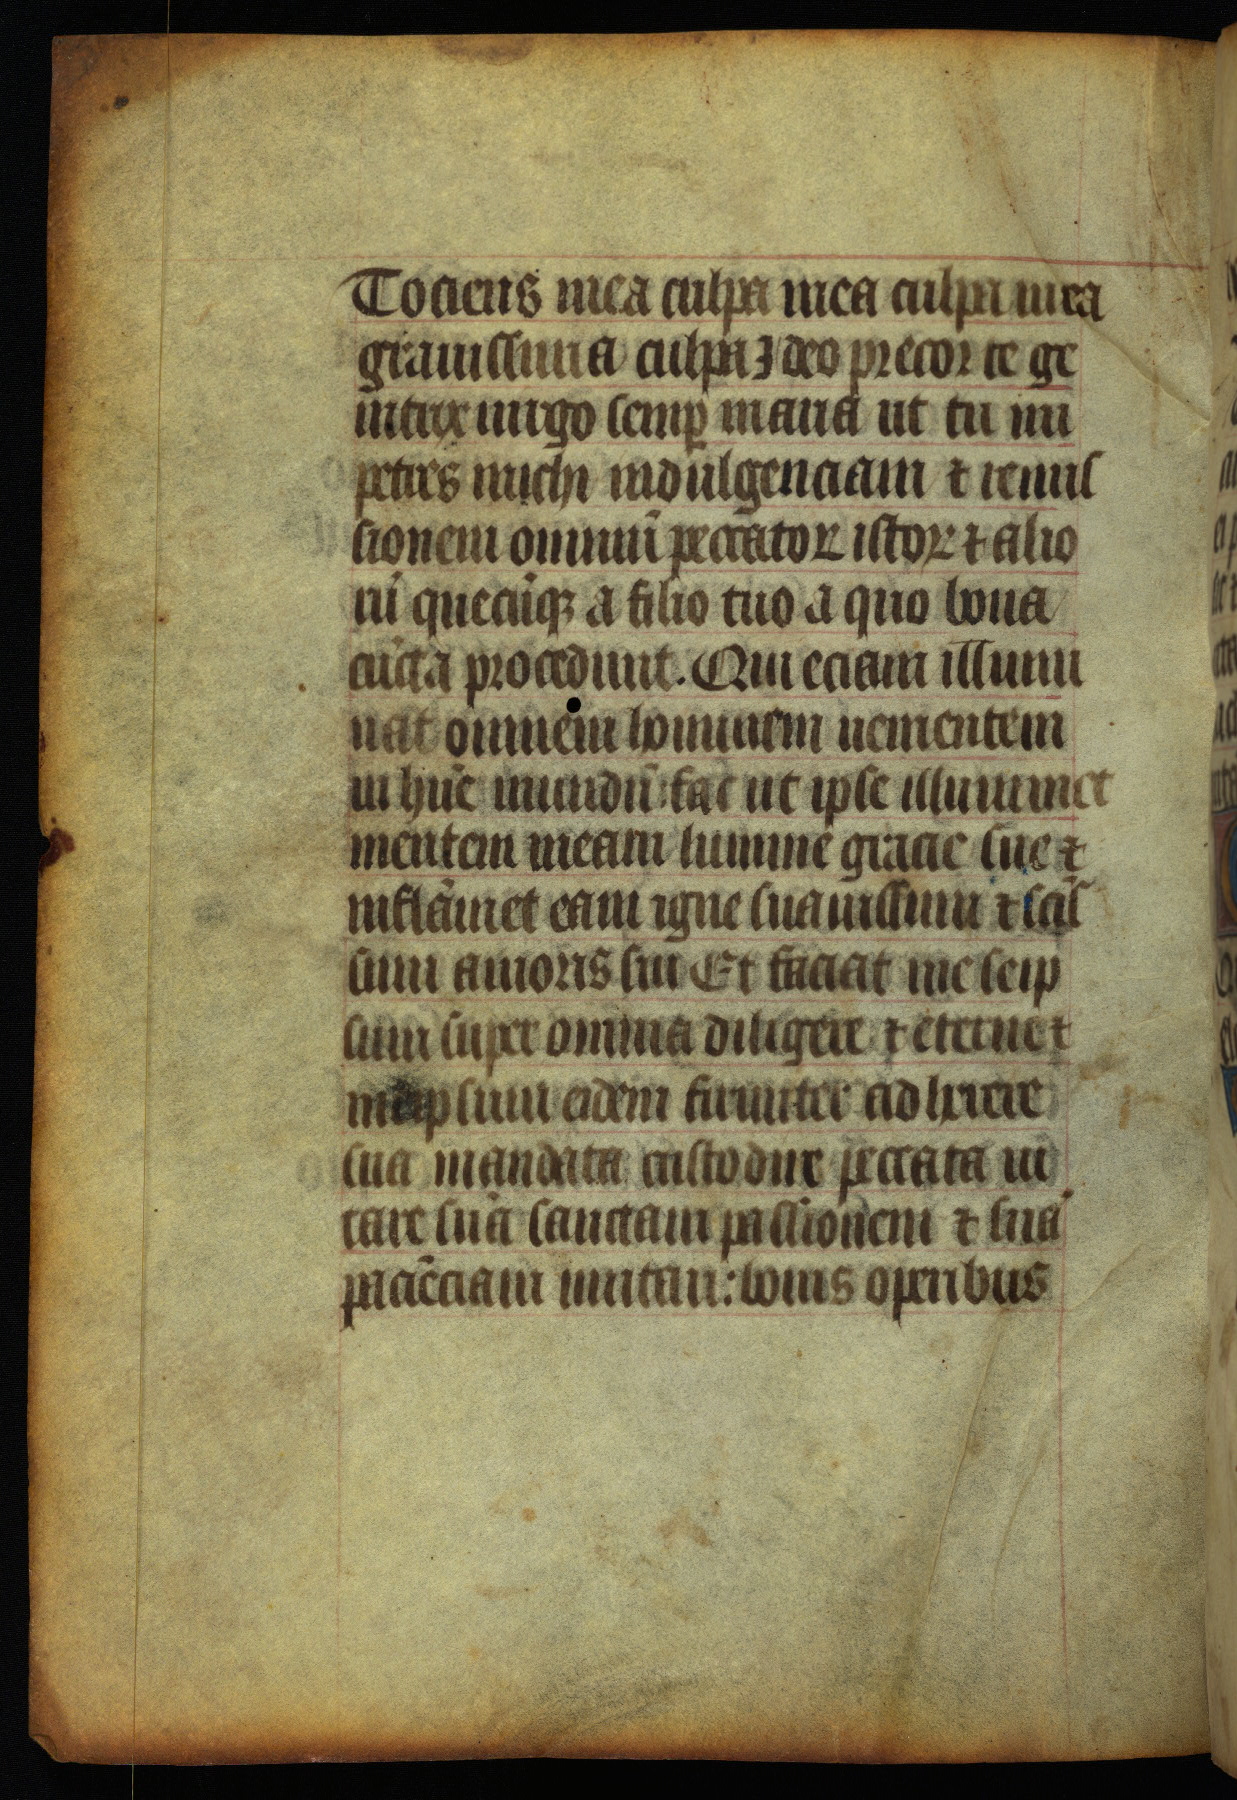 Tociens mea culpa mea culpa mea
grauissima culpa Ideo precor te ge
nitrix uirgo semp̲ maria ut tu im
petres michi indulgenciam ⁊ remis
sionem omniū peccatoꝝ istoꝝ ⁊ alio
rū quecūqꝫ a filio tuo a quo bona
cūcta procedunt. Qui eciam illumi
nat omnem hominem uenientem
in hūc mundū fac ut ipse illuminet
mentem meam lumine gracie sue ⁊
inflāmet eam igne suauissimi ⁊ scīs
simi amoris sui Et faciat me seip
sum super omnia diligere ⁊ eterne ⁊
meipsum eidem firmiter adherere
sua mandata custodire peccata ui
tare suā sanctam passionem ⁊ suā
paciēciam imitari: bonis operibus